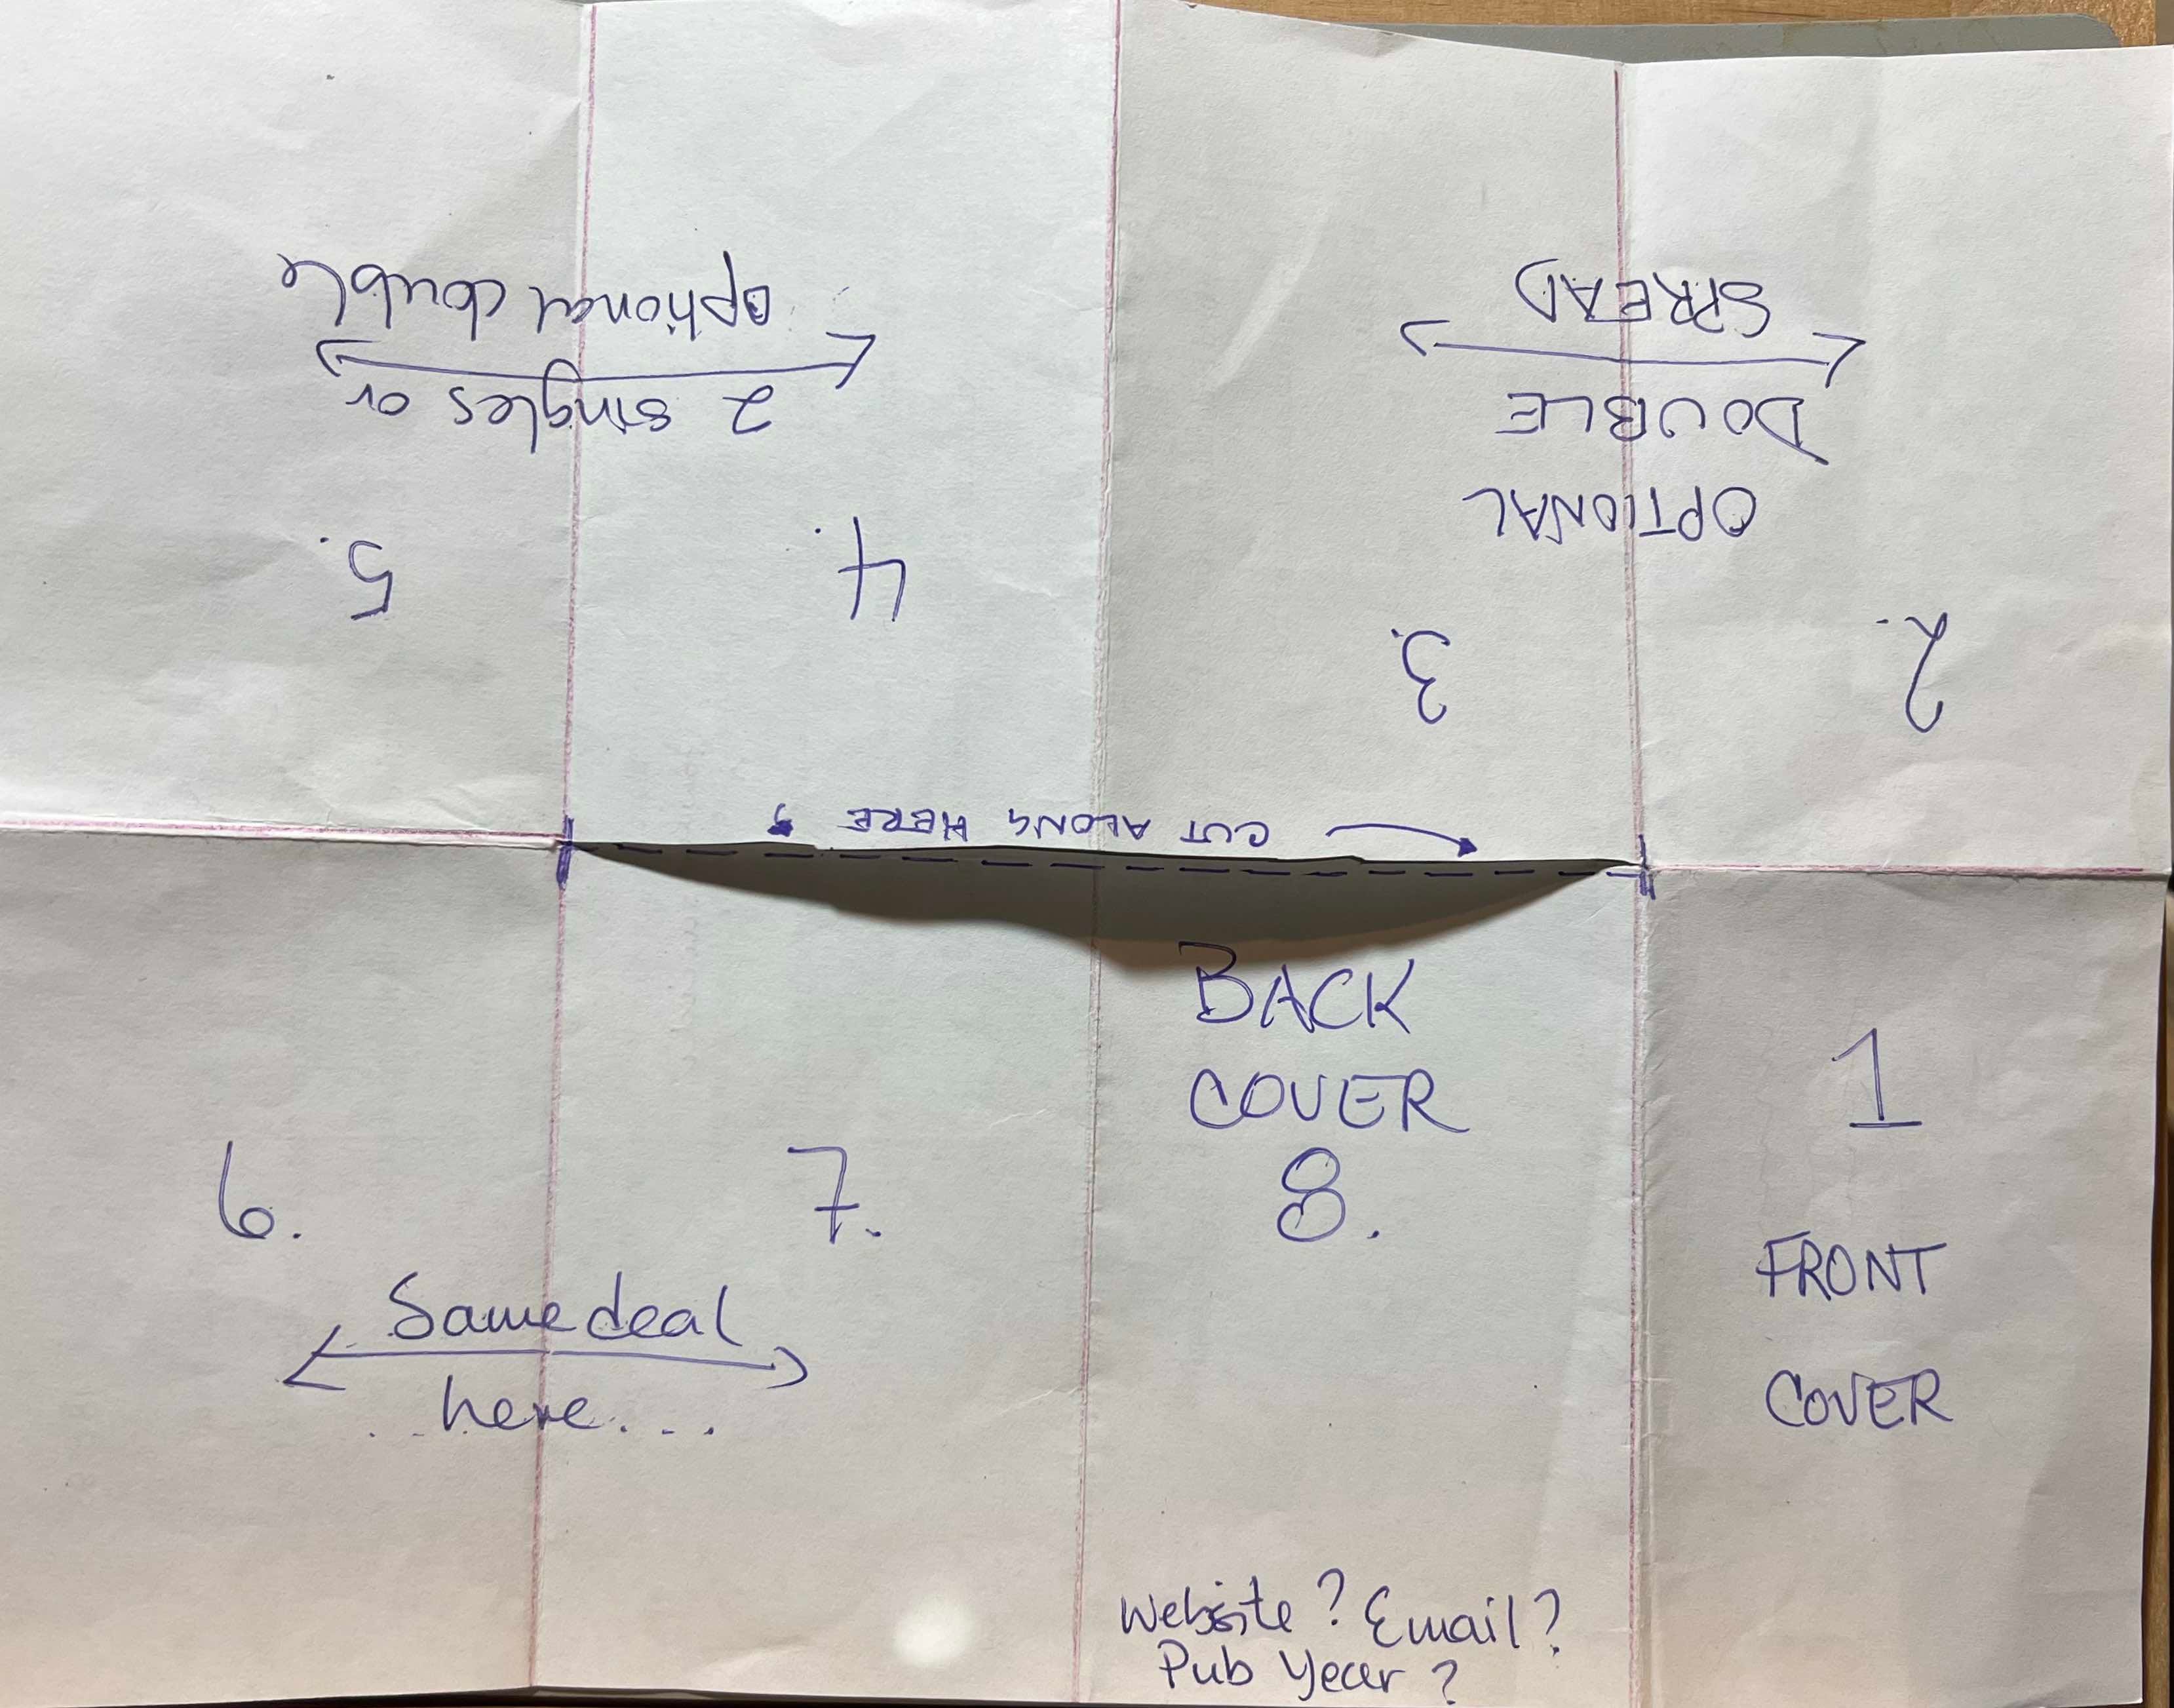 1
FRONT
COVER
2.
3.
OPTIONAL
DOUBLE
SPREAD
4.
5.
2 singles or
optional double
CUT ALONG HERE
6.
7.
Same deal
here...
BACK
COVER
8.
Website? Email?
Pub Year?